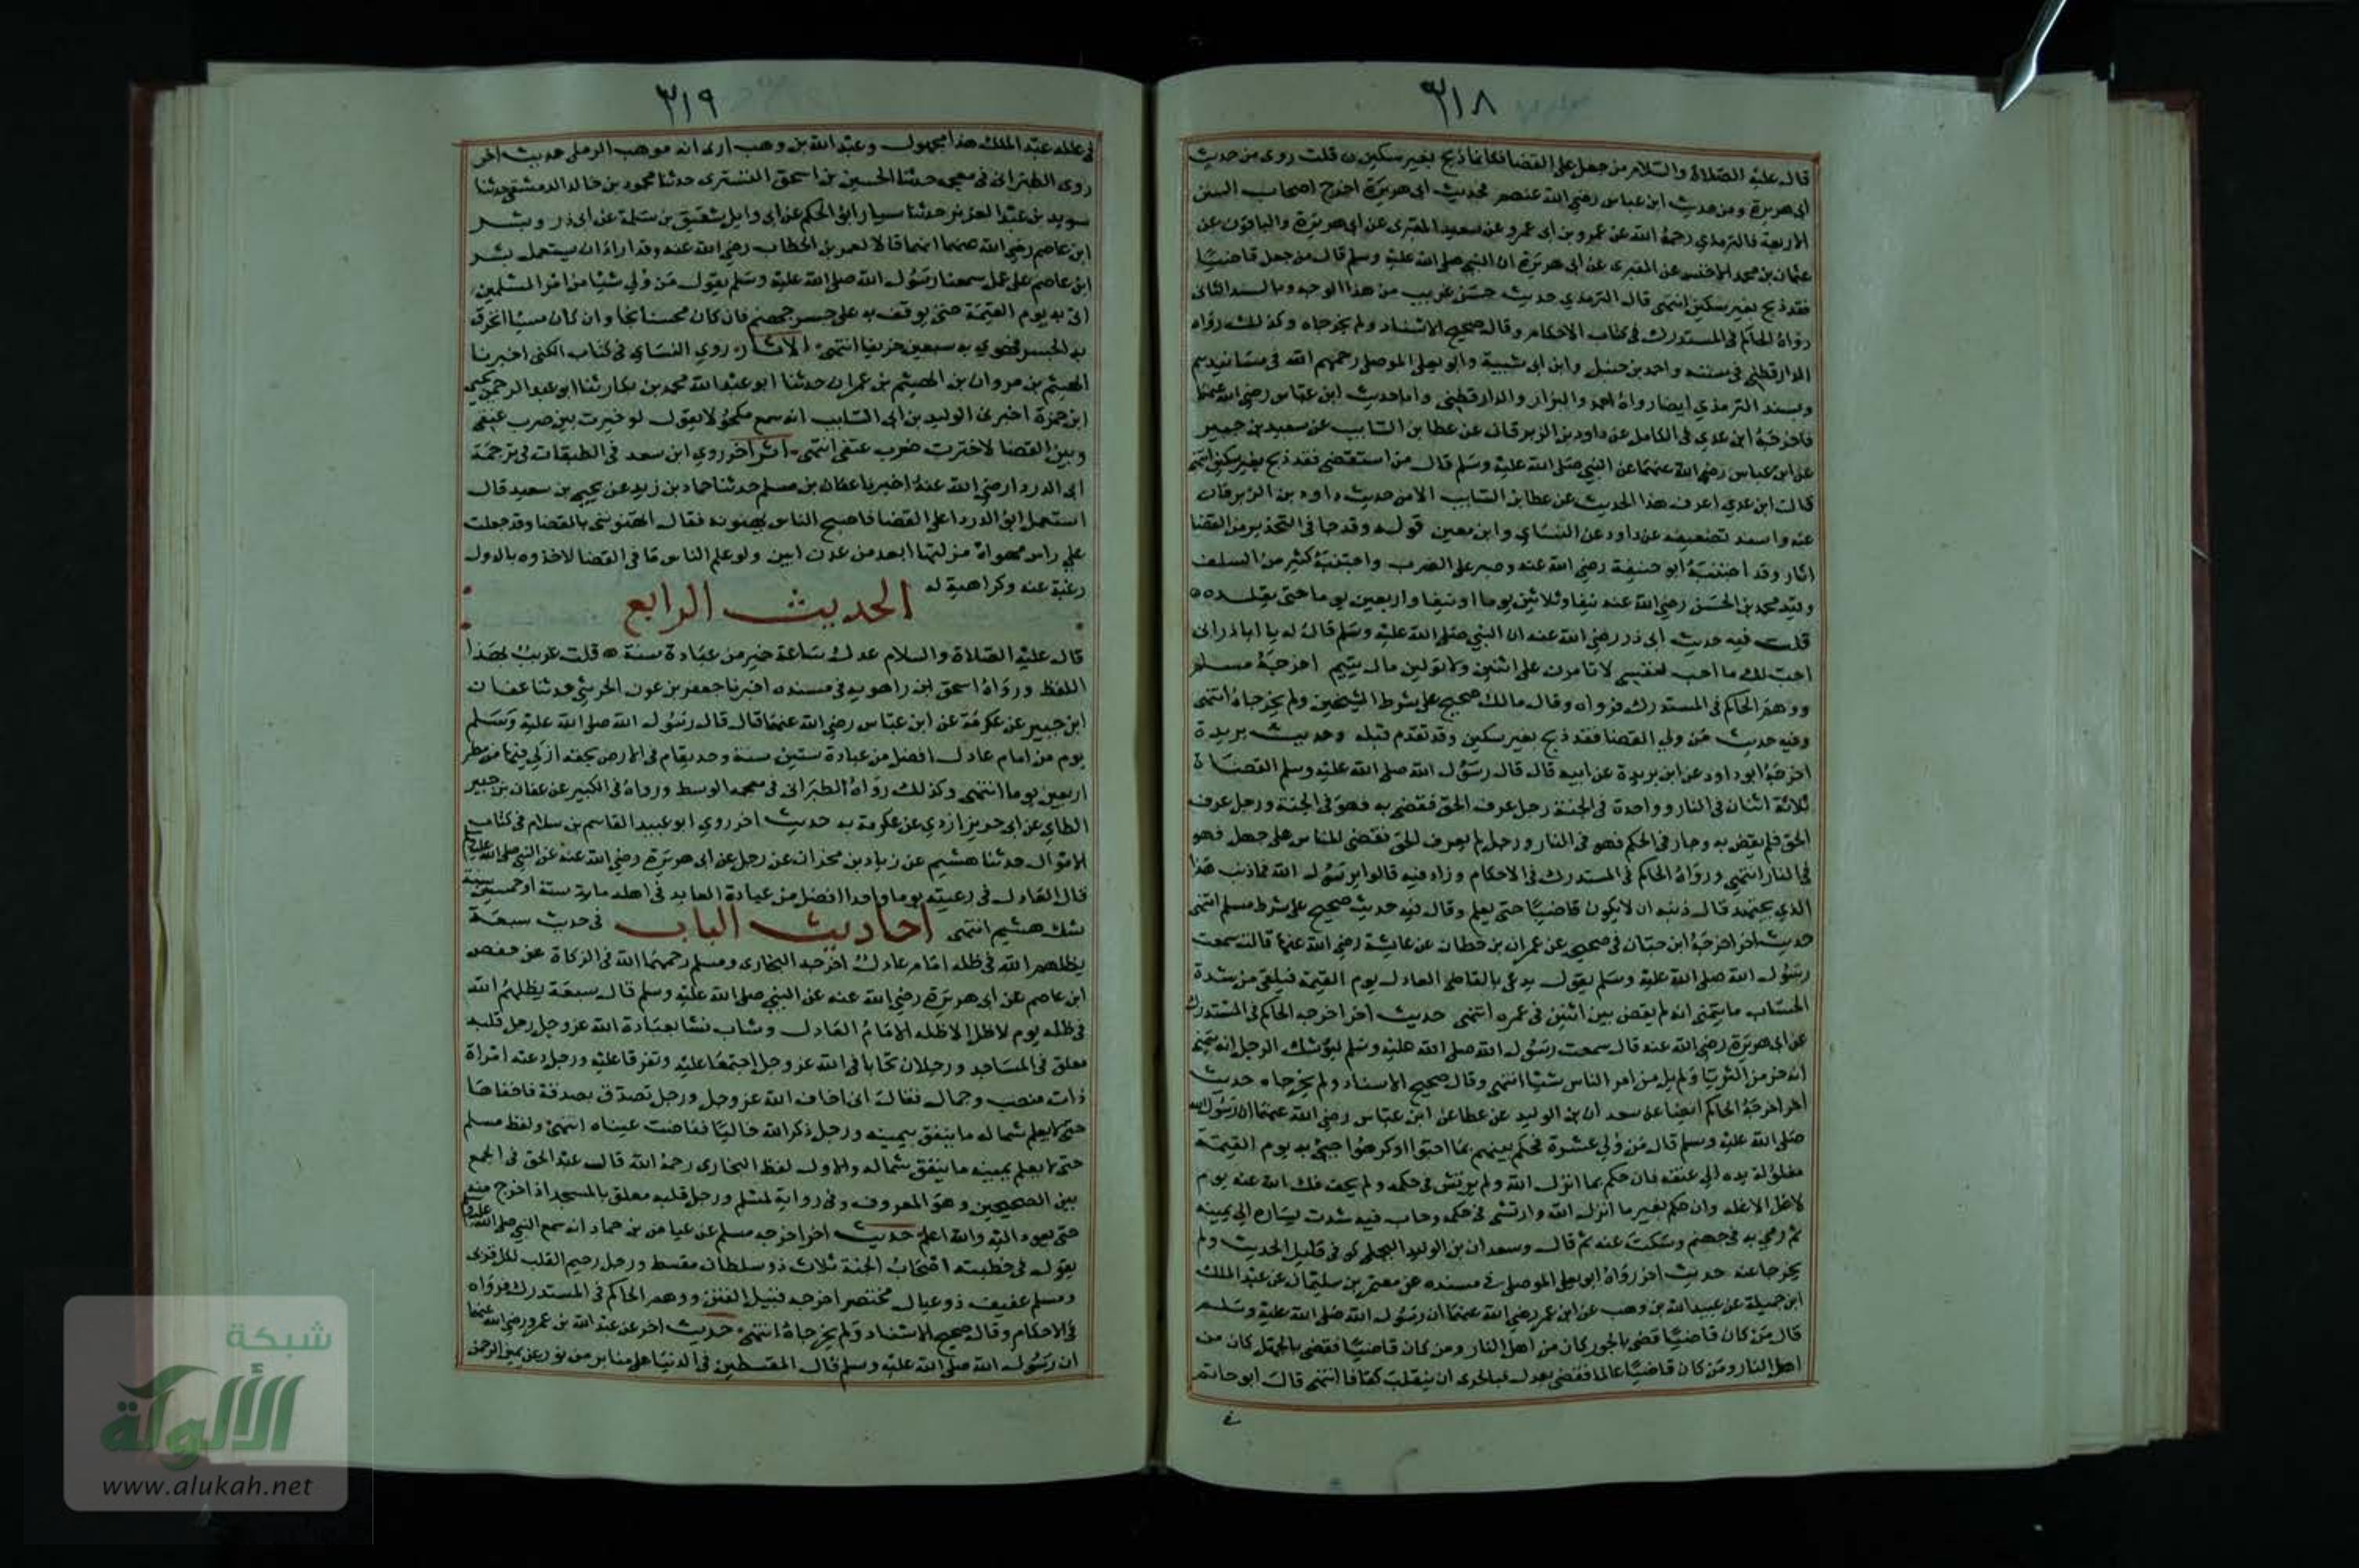 ٣١٨
قال عليه الصلاة والسلام من جعل على القضا فكانما ذبح بغير سكين ن قلت روى من حديث
ابى هريرة ومن حديث ابن عباس رضي الله عنهم فحديث ابى هريرة اخرج اصحاب السنن
الاربعة فالترمذي رحمه الله عن عمرو بن ابى عمرو عن سعيد المقبرى عن ابى هريرة والباقون عن
عثمان بن محمد الاخنسى عن المقبرى عن ابى هريرة ان النبي صلى الله عليه وسلم قال من جعل قاضيا
فقد ذبح بغير سكين انتهى قال الترمذي حديث حسن غريب من هذا الوجه وبالسند الثانى
رواه الحاكم فى المستدرك فى كتاب الاحكام وقال صحيح الاسناد ولم يخرجاه وكذلك رواه
الدارقطني فى سننه واحمد بن حنبل وابن ابى شيبة وابو يعلى الموصلى رحمهم الله فى مسانيدهم
وبسند الترمذي ايضا رواه احمد والبزار والدارقطنى واما حديث ابن عباس رضي الله عنهما
فاخرجه ابن عدي فى الكامل عن داود بن الزبرقان عن عطا بن السايب عن سعيد بن جبير
عن ابن عباس رضي الله عنهما عن النبي صلى الله عليه وسلم قال من استقضى فقد ذبح بغير سكين انتهى
قال ابن عدي اعرف هذا الحديث عن عطا بن السايب الا من حديث داود بن الزبرقان
عنه واسند تضعيفه عن داود عن النساي وابن معين قوله وقد جا فى التحذير من القضا
اثار وقد اجتنبه ابو حنيفة رضي الله عنه وصبر على الضرب واجتنبه كثير من السلف
وقيد محمد بن الحسن رضي الله عنه نيفا وثلاثين يوما او نيفا واربعين يوما حتى تقلده ه
قلت فيه حديث ابى ذر رضي الله عنه ان النبي صلى الله عليه وسلم قال له يا اباذر انى
احب لك ما احب لنفسي لا تامرن على اثنين ولا تولين مال يتيم اخرجه مسلم
ووهم الحاكم فى المستدرك فرواه وقال مالك صحيح على شرط الشيخين ولم يخرجاه انتهى
وفيه حديث من ولى القضا فقد ذبح بغير سكين وقد تقدم قبله وحديث بريدة
اخرجه ابو داود عن ابن بريدة عن ابيه قال قال رسول الله صلى الله عليه وسلم القضاة
ثلاثة اثنان فى النار وواحدة فى الجنة رجل عرف الحق فقضى به فهو فى الجنة ورجل عرف
الحق فلم يقض به وجار فى الحكم فهو فى النار ورجل لم يعرف الحق فقضى للناس على جهل فهو
فى النار انتهى ورواه الحاكم فى المستدرك فى الاحكام وزاد فيه قالوا يرسول الله فما ذنب هذا
الذي يجتهد قال ذنبه ان لا يكون قاضيا حتى يعلم وقال فيه حديث صحيح على شرط مسلم انتهى
حديث اخر اخرجه ابن حبان فى صحيحه عن عمران بن حطان عن عايشة رضي الله عنها قالت سمعت
رسول الله صلى الله عليه وسلم يقول يدعى بالقاضى العادل يوم القيمة فيلقى من شدة
الحساب ما يتمنى انه لم يقض بين اثنين فى عمره انتهى حديث اخر اخرجه الحاكم فى المستدرك
عن ابى هريرة رضي الله عنه قال سمعت رسول الله صلى الله عليه وسلم ليوشك الرجل انه يتمنى
انه خر من الثريا ولم يل من امر الناس شيا انتهى وقال صحيح الاسناد ولم يخرجاه حديث
اخر اخرجه الحاكم ايضا عن سعد ان بن الوليد عن عطا عن ابن عباس رضي الله عنهما ان رسول الله
صلى الله عليه وسلم قال من ولي عشرة فحكم بينهم بما احبوا او كرهوا جيئ به يوم القيمة
مغلولة يده الى عنقه فان حكم بما انزل الله ولم يرتش فى حكمه ولم يحف فك الله عنه يوم
لا غل الا غله وان حكم بغير ما انزل الله وارتشى فى حكمه وحاب فيه شدت يساره الى يمينه
ثم رمي به فى جهنم وسكت عنه ثم قال وسعدان بن الوليد البجلى كوفى قليل الحديث ولم
يخرجا عنه حديث اخر رواه ابو يعلى الموصلى فى مسنده عن معتمر بن سليمان عن عبد الملك
ابن جميلة عن عبيد الله بن وهب عن ابن عمر رضي الله عنهما ان رسول الله صلى الله عليه وسلم
قال من كان قاضيا قضى بالجور كان من اهل النار ومن كان قاضيا فقضى بالجهل كان من
اهل النار ومن كان قاضيا عالما فقضى بعدل فبالحرى ان ينقلب كفافا انتهى قال ابو حاتم
فى
٣١٩
فى علله عبد الملك هذا مجهول وعبد الله بن وهب ارى انه موهب الرملى حديث اخر
روى الطبرانى فى معجمه حدثنا الحسين بن اسحق التسترى حدثنا محمود بن خالد الدمشقى حدثنا
سويد بن عبد العزيز حدثنا سيار ابو الحكم عن ابى وايل شقيق بن سلمة عن ابى ذر وبشر
ابن عاصم رضي الله عنهما انهما قالا لعمر بن الخطاب رضي الله عنه وقد اراد ان يستعمل بشر
ابن عاصم على عمل سمعنا رسول الله صلى الله عليه وسلم يقول من ولي شيا من امر المسلمين
اتى به يوم القيمة حتى يوقف به على جسر جهنم فان كان محسنا نجا وان كان مسيا انخرق
به الجسر فهوي به سبعين خريفا انتهى الاثار روي النساي فى كتاب الكنى اخبرنا
الهيثم بن مروان بن الهيثم بن عمران حدثنا ابو عبد الله محمد بن بكار ثنا ابو عبد الرحمن يحيى
ابن حمزة اخبرنى الوليد بن ابى السايب انه سمع مكحولا يقول لو خيرت بين ضرب عنقى
وبين القضا لاخترت ضرب عنقى انتهى اثر اخر روي ابن سعد فى الطبقات فى ترجمة
ابى الدردا رضي الله عنه اخبرنا عفان بن مسلم حدثنا حماد بن زيد عن يحيى بن سعيد قال
استعمل ابو الدردا على القضا فاصبح الناس يهنونه فقال اتهنونى بالقضا وقد جعلت
على راس مهواة مزلتها ابعد من عدن ابين ولو علم الناس ما فى القضا لاخذوه بالدول
رغبة عنه وكراهية له الحديث الرابع
قال عليه الصلاة والسلام عدل ساعة خير من عبادة سنة ه قلت غريب بهذا
اللفظ ورواه اسحق ابن راهويه فى مسنده اخبرنا جعفر بن عون الحريثي حدثنا عفان
ابن جبير عن عكرمة عن ابن عباس رضي الله عنهما قال قال رسول الله صلى الله عليه وسلم
يوم من امام عادل افضل من عبادة ستين سنة وحد يقام فى الارض بحقه ازكى فيها من مطر
اربعين يوما انتهى وكذلك رواه الطبرانى فى معجمه الوسط ورواه فى الكبير عن عفان بن جبير
الطاي عن ابى حريز ازدي عن عكرمة به حديث اخر روي ابو عبيد القاسم بن سلام فى كتاب
الاموال حدثنا هشيم عن زياد بن مخراق عن رجل عن ابى هريرة رضي الله عنه عن النبي صلى الله عليه وسلم
قال العادل فى رعيته يوما واحدا افضل من عبادة العابد فى اهله ماية سنة او خمسين سنة
شك هشيم انتهى احاديث الباب فى حديث سبعة
يظلهم الله فى ظله امام عادل اخرجه البخارى ومسلم رحمهما الله فى الزكاة عن حفص
ابن عاصم عن ابى هريرة رضي الله عنه عن النبي صلى الله عليه وسلم قال سبعة يظلهم الله
فى ظله يوم لا ظل الا ظله الامام العادل وشاب نشا بعبادة الله عز وجل رجل قلبه
معلق فى المساجد ورجلان تحابا فى الله عز وجل اجتمعا عليه وتفرقا عليه ورجل دعته امراة
ذات منصب وجمال فقال انى اخاف الله عز وجل ورجل تصدق بصدقة فاخفاها
حتى لا يعلم شماله ما ينفق يمينه ورجل ذكر الله خاليا ففاضت عيناه انتهى ولفظ مسلم
حتى لا يعلم يمينه ما ينفق شماله والاول لفظ البخارى رحمه الله قال عبد الحق فى الجمع
بين الصحيحين وهو المعروف وفى رواية لمسلم ورجل قلبه معلق بالمسجد اذا خرج منه
حتى يعود اليه والله اعلم حديث اخر اخرجه مسلم عن عياض بن حماد انه سمع النبي صلى الله عليه وسلم
يقول فى خطبته اصحاب الجنة ثلاث ذو سلطان مقسط ورجل رحيم القلب لكل قربى
ومسلم عفيف ذو عيال مختصر اخرجه قبيل الفتن ووهم الحاكم فى المستدرك فرواه
فى الاحكام وقال صحيح الاسناد ولم يخرجاه انتهى حديث اخر عن عبد الله بن عمرو رضي الله عنهما
ان رسول الله صلى الله عليه وسلم قال المقسطين فى الدنيا على منابر من نور عن يمين الرحمن
شبكة
الألوكة
www.alukah.net